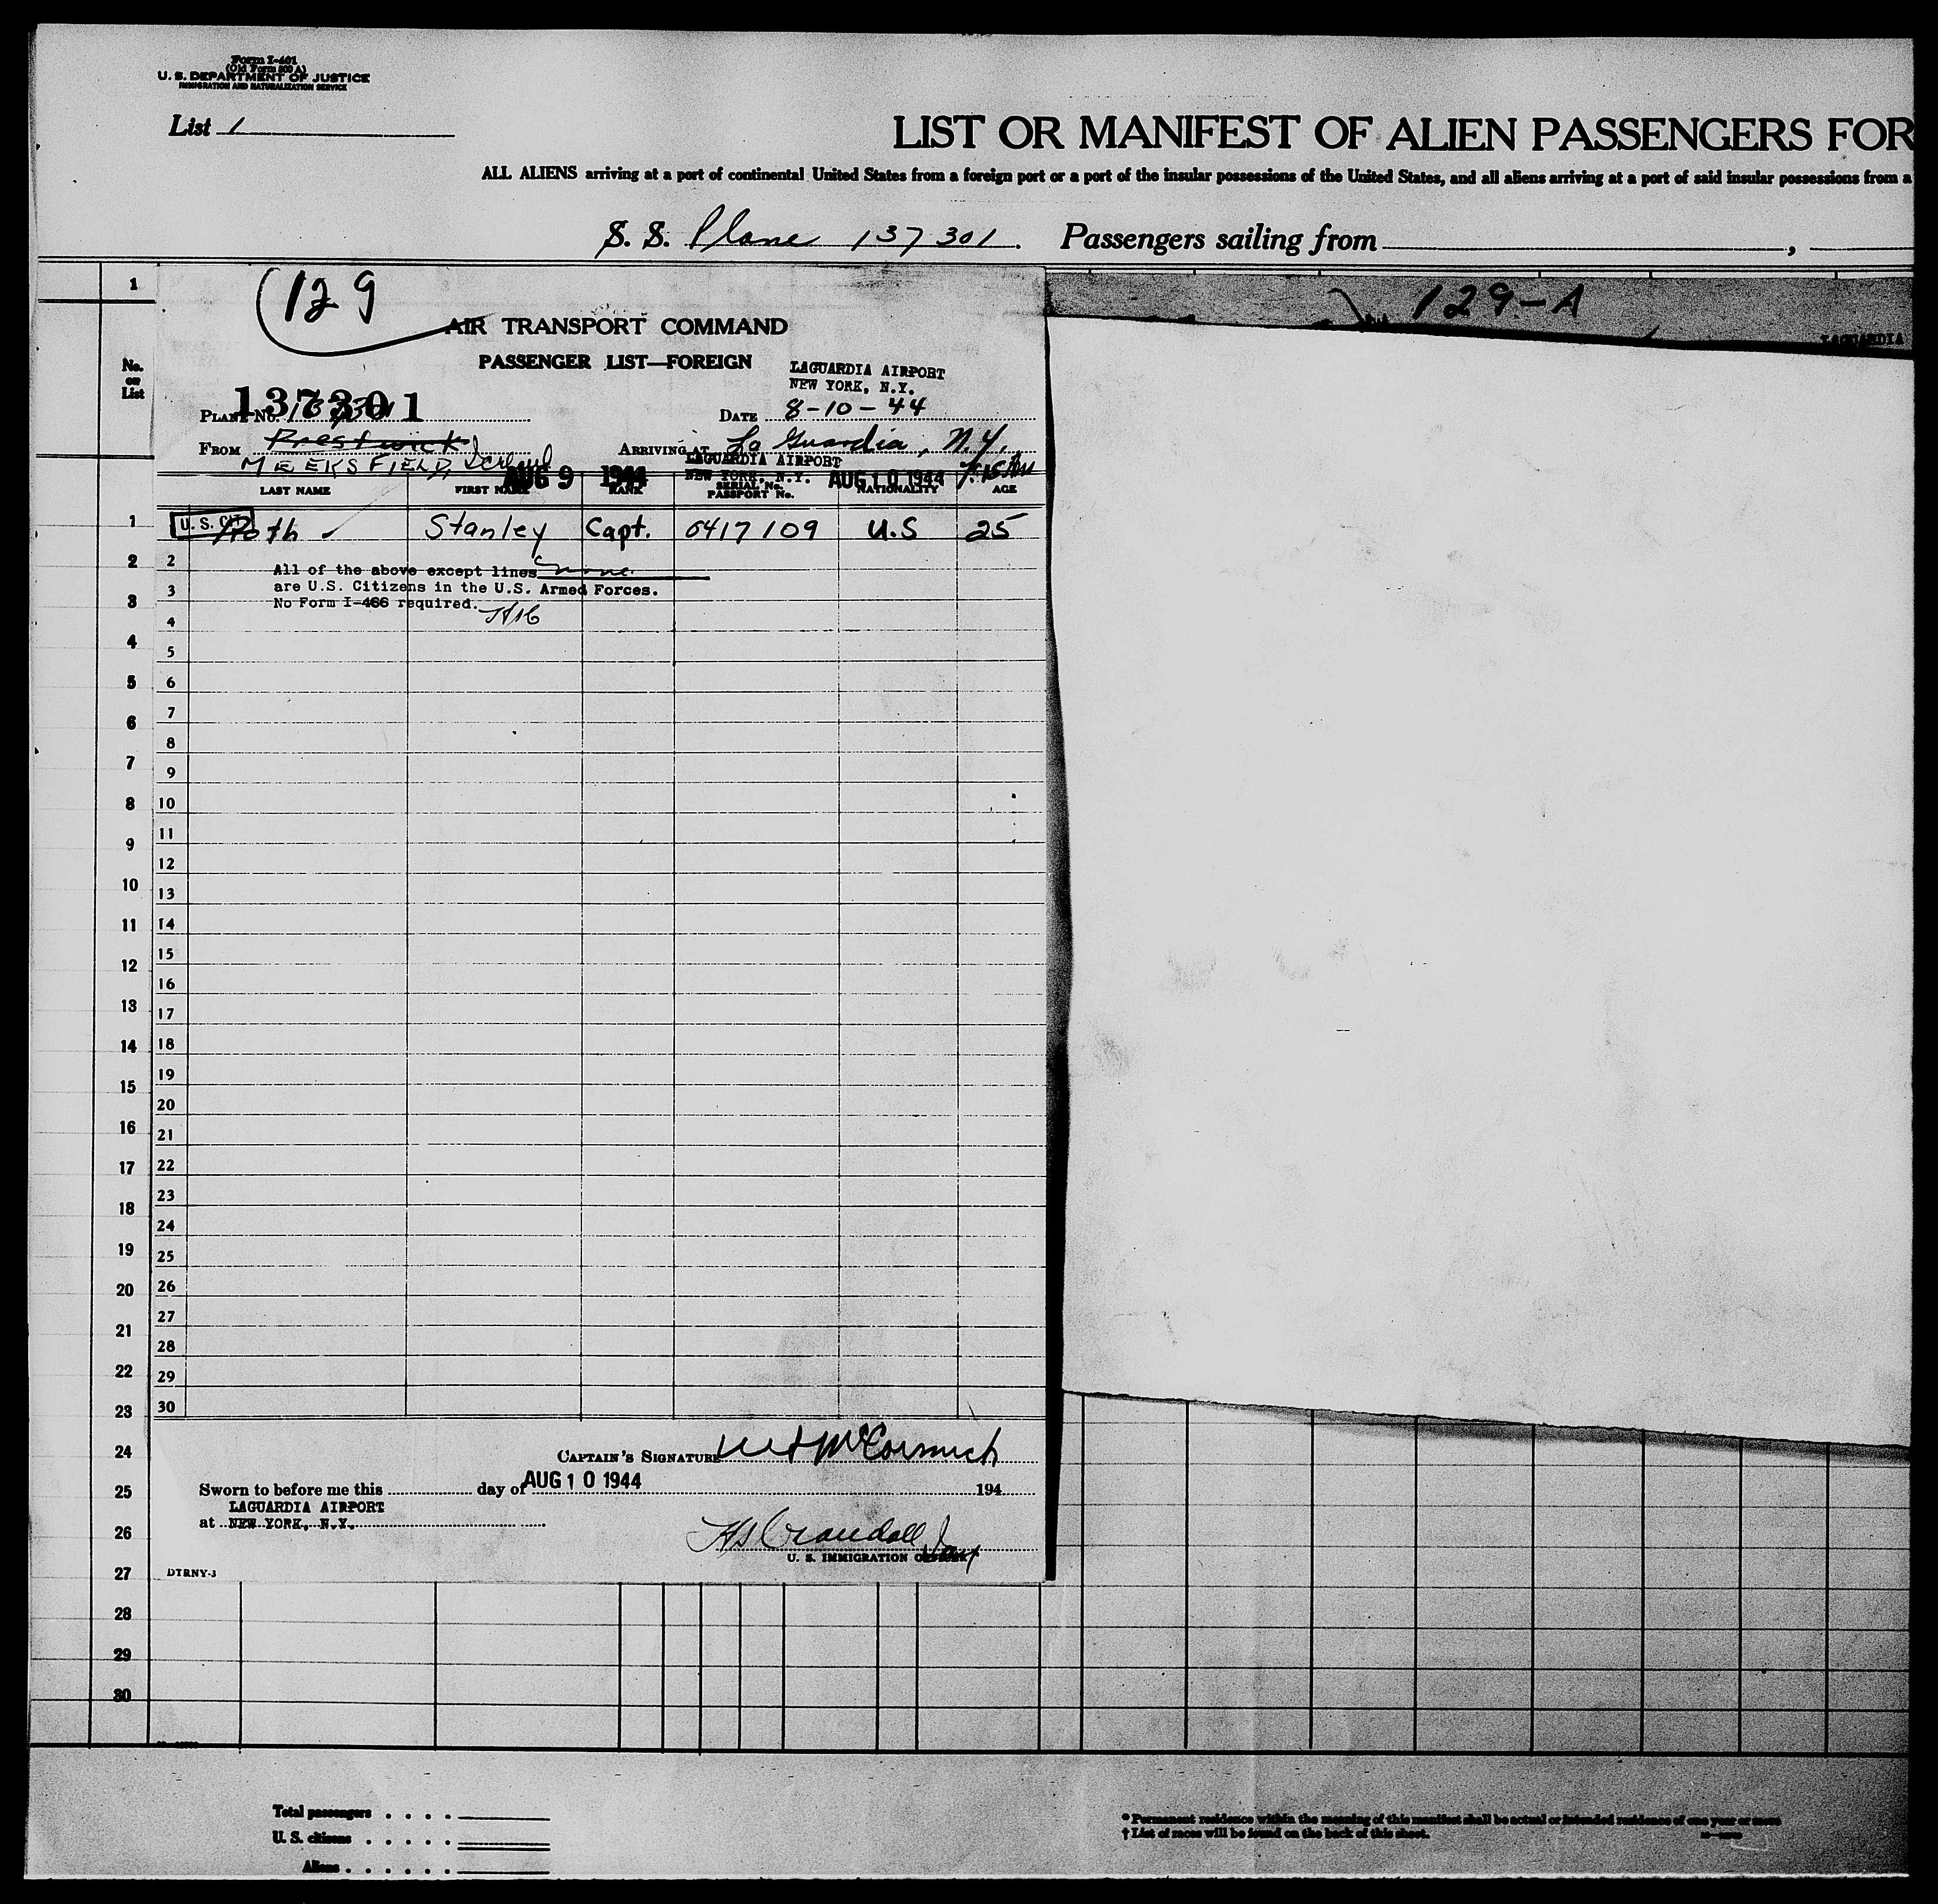 Form I-401
(Old Form 500 A)
U. S. DEPARTMENT OF JUSTICE
IMMIGRATION AND NATURALIZATION SERVICE
List 1
LIST OR MANIFEST OF ALIEN PASSENGERS FOR
ALL ALIENS arriving at a port of continental United States from a foreign port or a port of the insular possessions of the United States, and all aliens arriving at a port of said insular possessions from a
S. S. Plane 137301. Passengers sailing from
1
129
129-A
LAGUARDIA
AIR TRANSPORT COMMAND
PASSENGER LIST—FOREIGN
LAGUARDIA AIRPORT
NEW YORK, N.Y.
No. on List
PLANE No. 137301
DATE 8-10-44
FROM Prestwick
ARRIVING AT La Guardia, N.Y.
MEEKS FIELD, Iceland
LAGUARDIA AIRPORT
NEW YORK, N.Y.
AUG 9 1944
AUG 10 1944
LAST NAME FIRST NAME RANK SERIAL No. PASSPORT No. NATIONALITY AGE
U. S. CIT.
1 Roth Stanley Capt. 0417109 U.S 25
All of the above except lines none
are U.S. Citizens in the U.S. Armed Forces.
No Form I-466 required.
2
3
4
5
6
7
8
9
10
11
12
13
14
15
16
17
18
19
20
21
22
23
24
25
26
27
28
29
30
1
2
3
4
5
6
7
8
9
10
11
12
13
14
15
16
17
18
19
20
21
22
23
24
25
26
27
28
29
30
CAPTAIN'S SIGNATURE McCormick
Sworn to before me this day of AUG 10 1944 194
LAGUARDIA AIRPORT
at NEW YORK, N.Y.
HS Crandall
U. S. IMMIGRATION OFFICER
DTRNY-3
Total passengers
U. S. citizens
Aliens
* Permanent residence within the meaning of this manifest shall be actual or intended residence of one year or more
† List of races will be found on the back of this sheet.